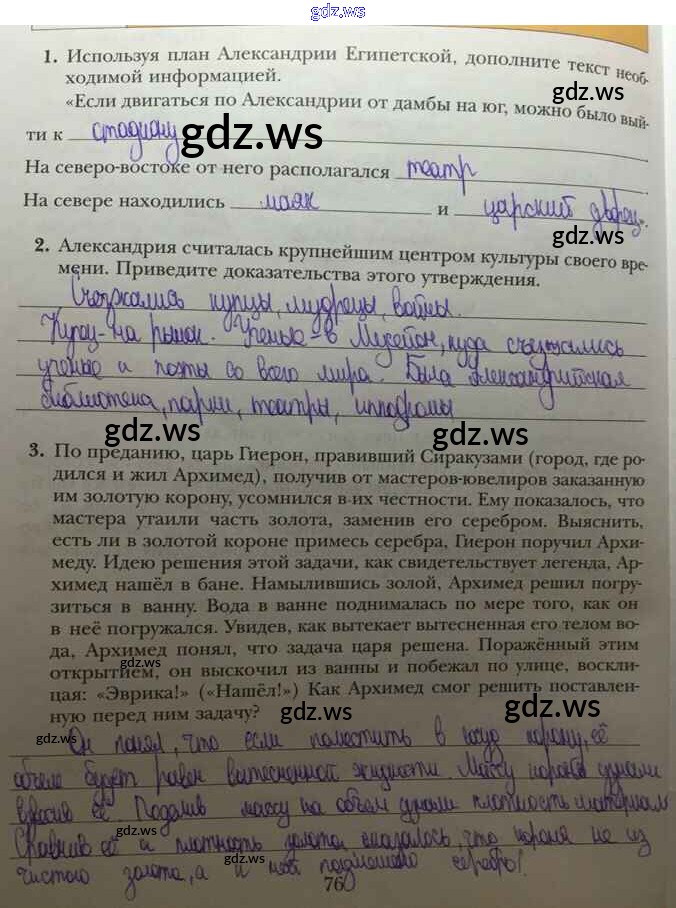 gdz.ws
1. Используя план Александрии Египетской, дополните текст необ-
ходимой информацией.
gdz.ws
«Если двигаться по Александрии от дамбы на юг, можно было вый-
ти к стадиону
gdz.ws
На северо-востоке от него располагался театр.
На севере находились маяк и царский дворец».
gdz.ws
2. Александрия считалась крупнейшим центром культуры своего вре-
мени. Приведите доказательства этого утверждения.
Съезжались купцы, мудрецы, воины.
Купцы - на рынок. Ученые - в Музейон, куда съезжались
ученые и поэты со всего мира. Была Александрийская
библиотека, парки, театры, ипподромы
gdz.ws gdz.ws
3. По преданию, царь Гиерон, правивший Сиракузами (город, где ро-
дился и жил Архимед), получив от мастеров-ювелиров заказанную
им золотую корону, усомнился в их честности. Ему показалось, что
мастера утаили часть золота, заменив его серебром. Выяснить,
есть ли в золотой короне примесь серебра, Гиерон поручил Архи-
меду. Идею решения этой задачи, как свидетельствует легенда, Ар-
химед нашёл в бане. Намылившись золой, Архимед решил погру-
зиться в ванну. Вода в ванне поднималась по мере того, как он
в неё погружался. Увидев, как вытекает вытесненная его телом во-
да, Архимед понял, что задача царя решена. Поражённый этим
gdz.ws
открытием, он выскочил из ванны и побежал по улице, воскли-
цая: «Эврика!» («Нашёл!») Как Архимед смог решить поставлен-
ную перед ним задачу?
gdz.ws gdz.ws
gdz.ws
Он понял, что если поместить в воду корону, её
объем будет равен вытесненной жидкости. Массу короны узнали
взвесив её. Поделив массу на объем узнали плотность материала
gdz.ws
Сравнив её и плотность золота, оказалось, что корона не из
gdz.ws
чистого золота, а к ней подмешано серебро!
76